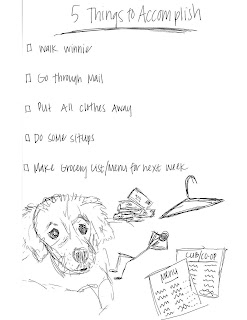 5 Things to Accomplish
Walk Winnie
Go through Mail
Put All Clothes Away
Do some situps
Make Grocery List/Menu for next week
Menu